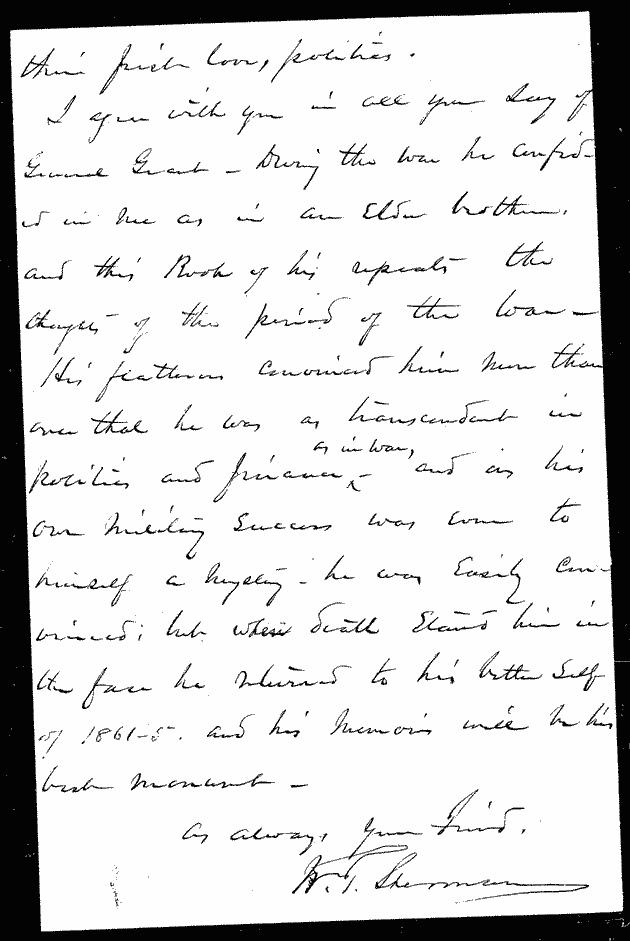 their first love, politics.
I agree with you in all you say of
General Grant - During the war he confid-
ed in me as in an Elder brother,
and this Book of his repeats the
thoughts of the period of the War -
His flatterers convinced him more than
ever that he was as transcendent in
politics and finance, as in war, - and as his
own military success was even to
himself a mystery - he was Easily con-
vinced; but when death Stared him in
the face he returned to his better Self
of 1861-5. and his Memoirs will be his
best monument -
As always, Your friend,
W. T. Sherman